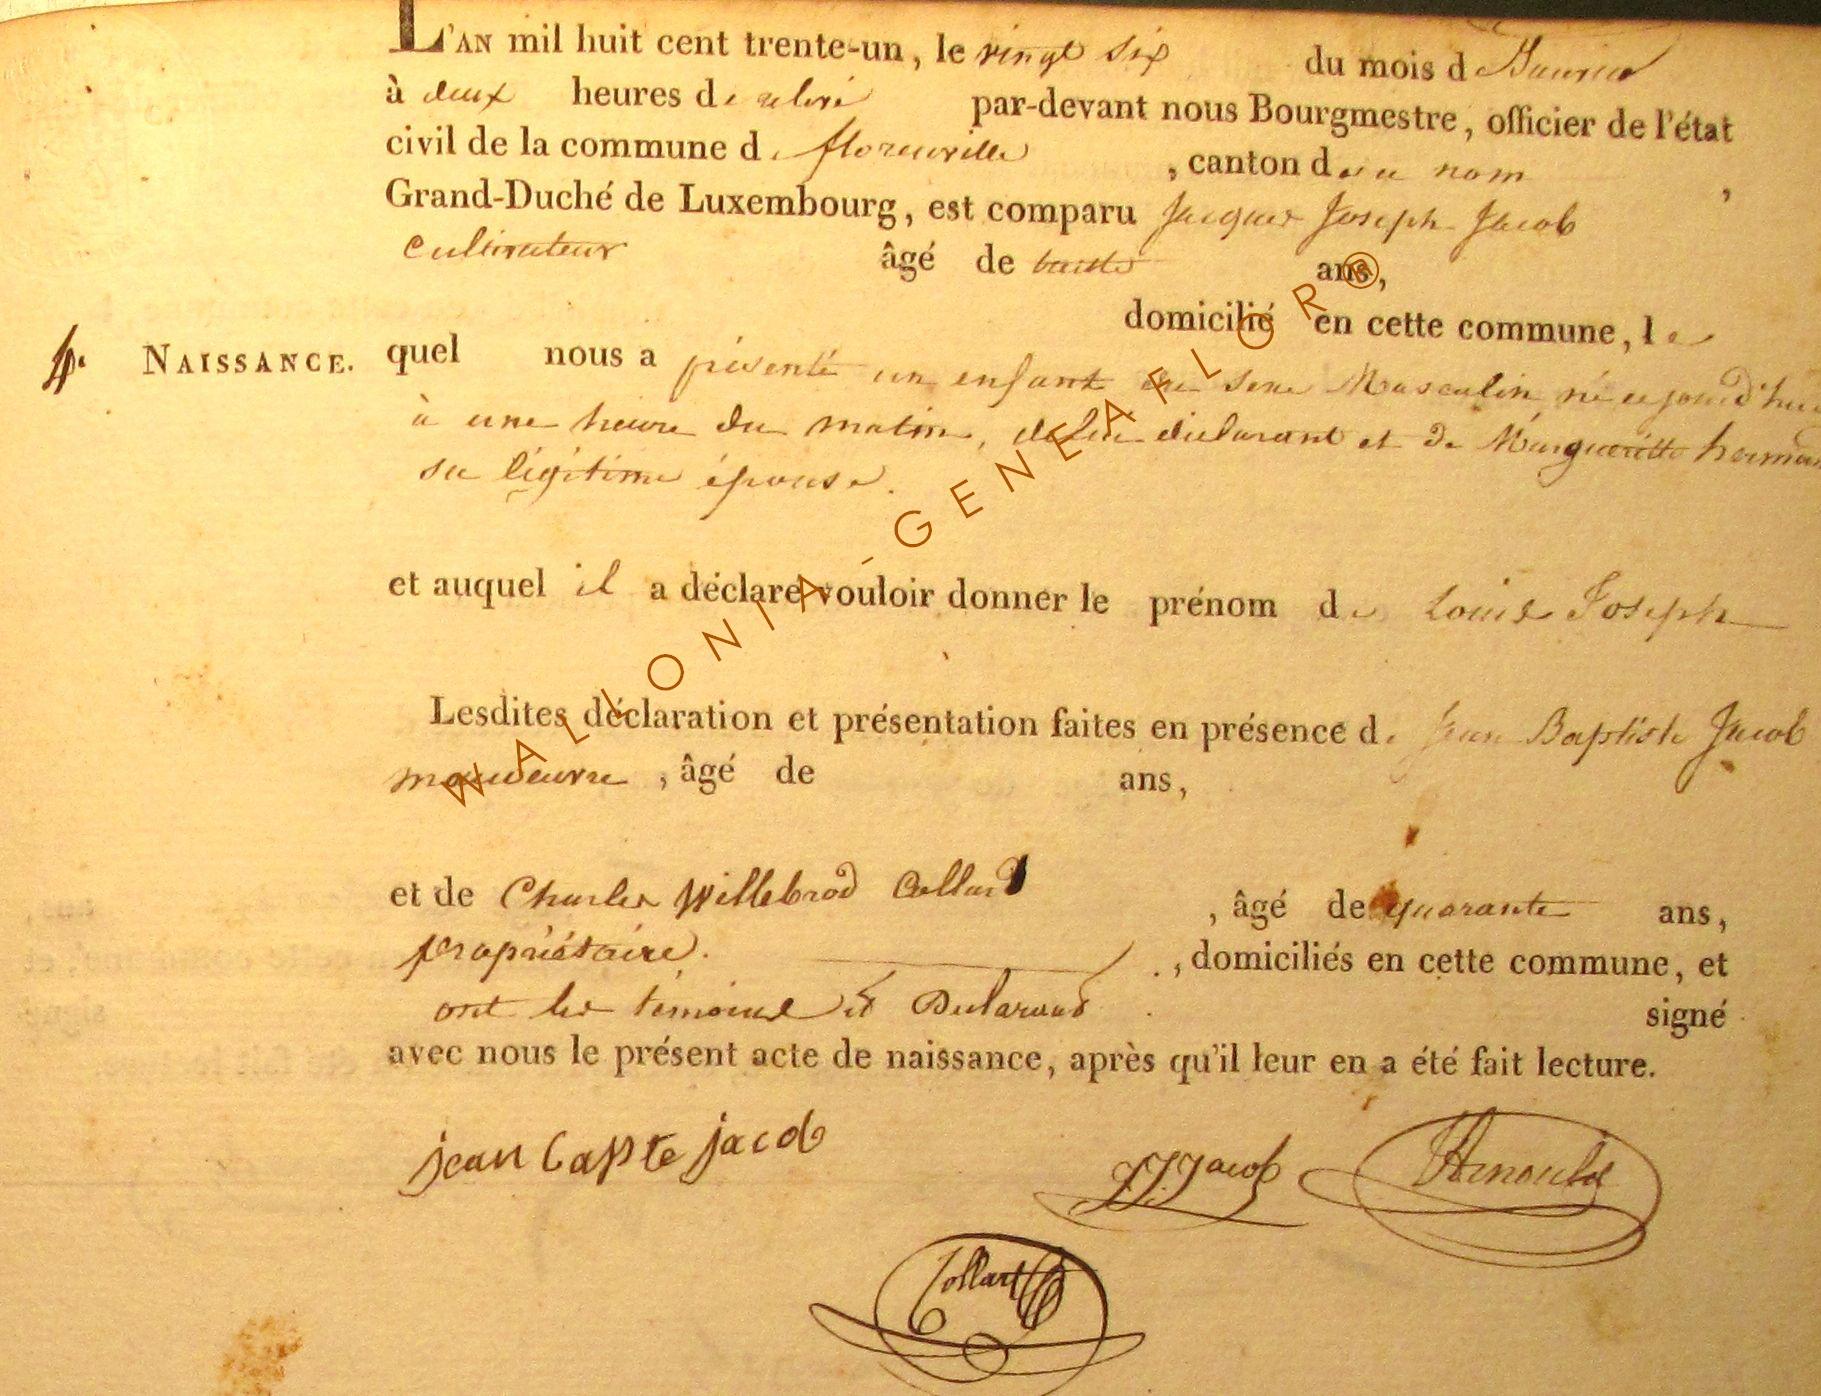 L'AN mil huit cent trente-un, le vingt six du mois de
à deux heures de relevé par-devant nous Bourgmestre, officier de l'état
civil de la commune de florenville, canton de ce nom,
Grand-Duché de Luxembourg, est comparu Jacques Joseph Jacob
cultivateur âgé de trente ans,
domicilié en cette commune, le
4. NAISSANCE. quel nous a présenté un enfant du sexe Masculin né ce jourd'hui
à une heure du matin, de lui déclarant et de Margueritte
sa légitime épouse.
et auquel il a déclaré vouloir donner le prénom de Louis Joseph
Lesdites déclaration et présentation faites en présence de Jean Baptiste Jacob
manoeuvre, âgé de ans,
et de Charles Willebrod Collard, âgé de quarante ans,
propriétaire. , domiciliés en cette commune, et
ont les témoins et Déclarant signé
avec nous le présent acte de naissance, après qu'il leur en a été fait lecture.
jean bapte jacob
JJ Jacob
Collart
WALLONIA-GENEAFLOR®